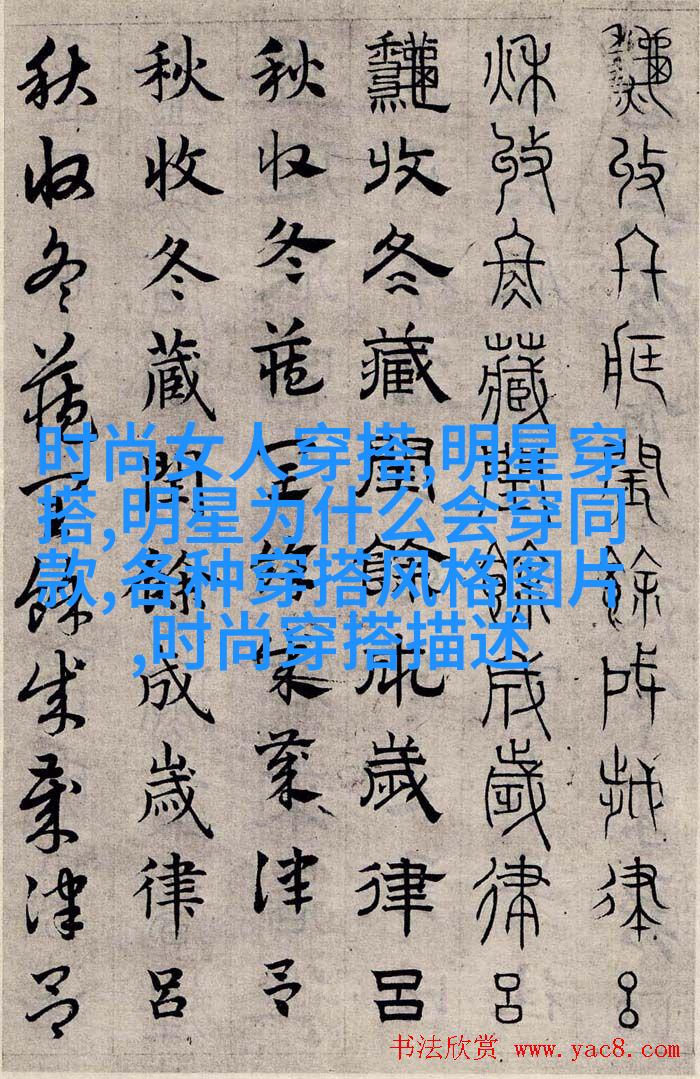 龝收冬藏閏餘成歲律呂
秋收冬藏閏餘成歲律呂
龝收冬藏閏餘成歲律呂
秋收冬藏閏餘成歲律呂
秋收冬蔵閏餘成歲律呂
秋收冬藏閏餘成歲律呂
时尚女人穿搭,明星穿
搭,明星为什么会穿同
款,各种穿搭风格图片
,时尚穿搭描述
书法欣赏 www.yac8.com